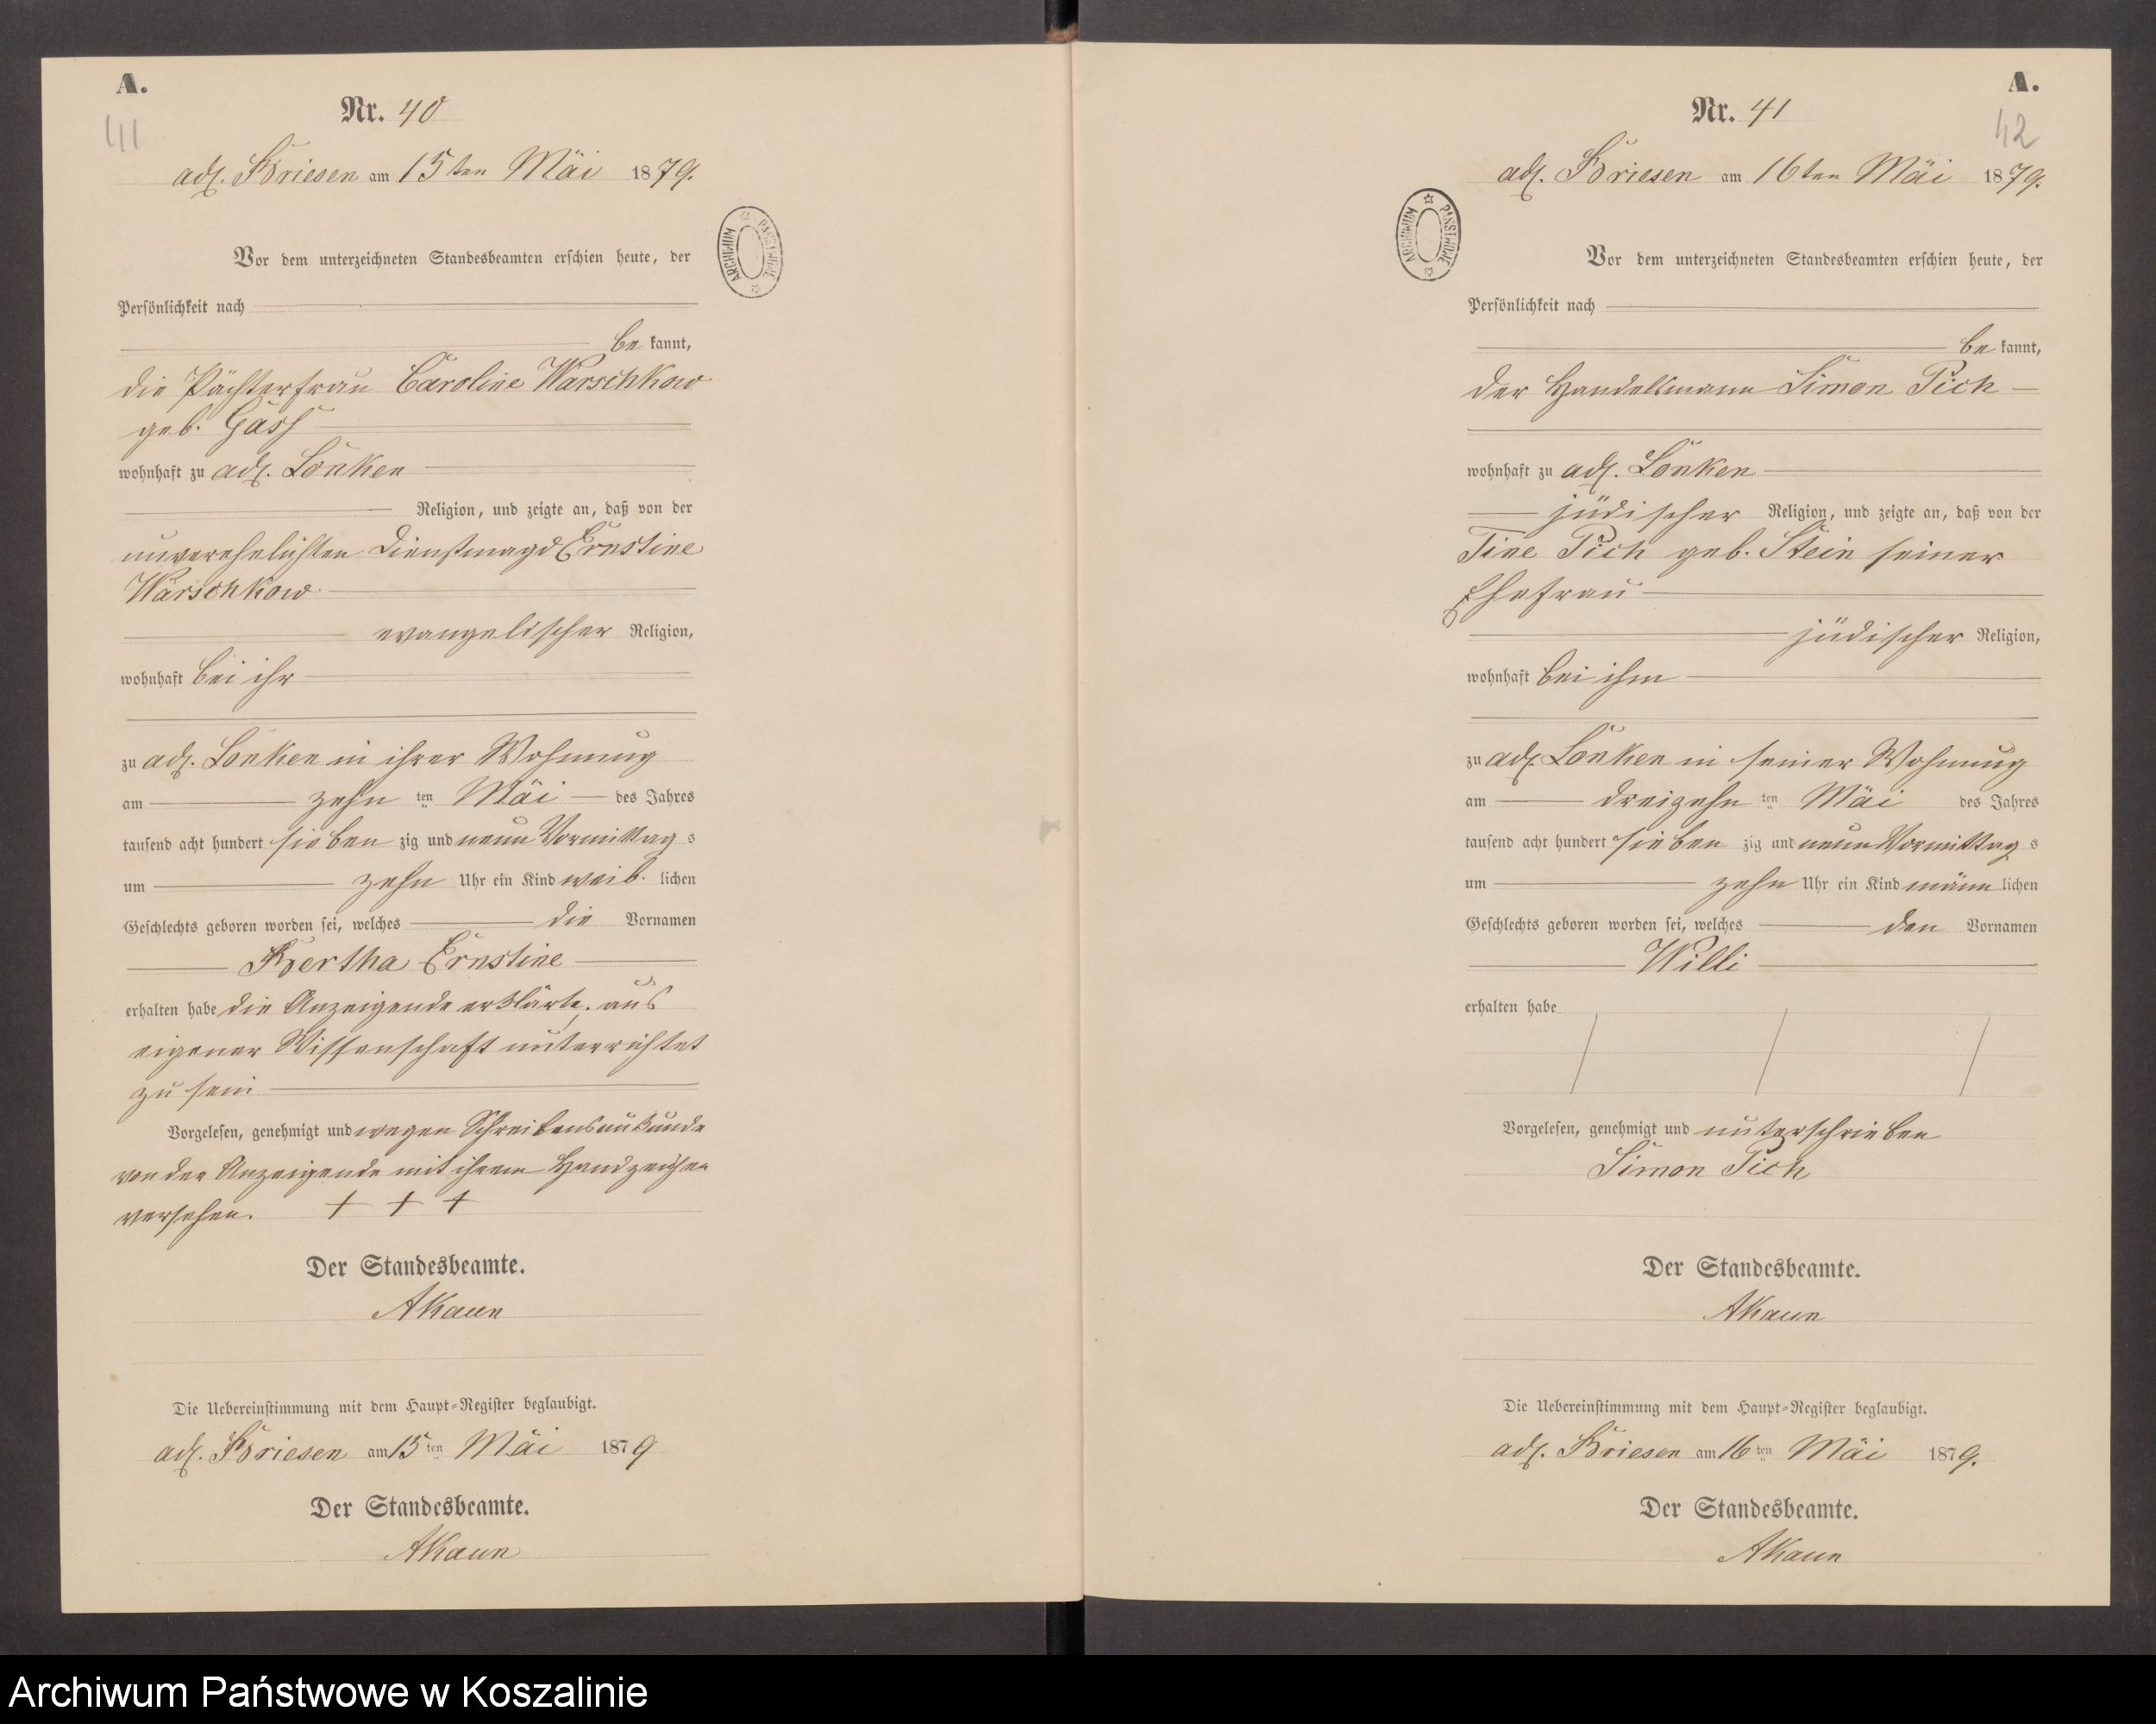 A.
41
Nr. 40
adl. Briesen am 15ten Mai 1879.
Vor dem unterzeichneten Standesbeamten erschien heute, der
Persönlichkeit nach
be kannt,
die Pächterfrau Caroline Warschkow
geb. Gass
wohnhaft zu adl. Lonken
Religion, und zeigte an, daß von der
unverehelichten Dienstmagd Ernstine
Warschkow
evangelischer Religion,
wohnhaft bei ihr
zu adl. Lonken in ihrer Wohnung
am zehn ten Mai des Jahres
tausend acht hundert sieben zig und neun Vormittag s
um zehn Uhr ein Kind weib. lichen
Geschlechts geboren worden sei, welches die Vornamen
Bertha Ernstine
erhalten habe die Anzeigende erklärte, aus
eigener Wissenschaft unterrichtet
zu sein
Vorgelesen, genehmigt und wegen Schreibensunkunde
von der Anzeigende mit ihrem Handzeichen
versehen. + + +
Der Standesbeamte.
AKaun
Die Uebereinstimmung mit dem Haupt-Register beglaubigt.
adl. Briesen am 15 ten Mai 1879
Der Standesbeamte.
AKaun
ARCHIWUM PAŃSTWOWE
A.
42
Nr. 41
adl. Briesen am 16ten Mai 1879.
ARCHIWUM PAŃSTWOWE
Vor dem unterzeichneten Standesbeamten erschien heute, der
Persönlichkeit nach
be kannt,
der Handelsmann Simon Pich
wohnhaft zu adl. Lonken
jüdischer Religion, und zeigte an, daß von der
Tine Pich geb. Stein seiner
Ehefrau
jüdischer Religion,
wohnhaft bei ihm
zu adl. Lonken in seiner Wohnung
am dreizehn ten Mai des Jahres
tausend acht hundert sieben zig und neun Vormittag s
um zehn Uhr ein Kind männ lichen
Geschlechts geboren worden sei, welches den Vornamen
Willi
erhalten habe
Vorgelesen, genehmigt und unterschrieben
Simon Pich
Der Standesbeamte.
AKaun
Die Uebereinstimmung mit dem Haupt-Register beglaubigt.
adl. Briesen am 16 ten Mai 1879.
Der Standesbeamte.
AKaun
Archiwum Państwowe w Koszalinie